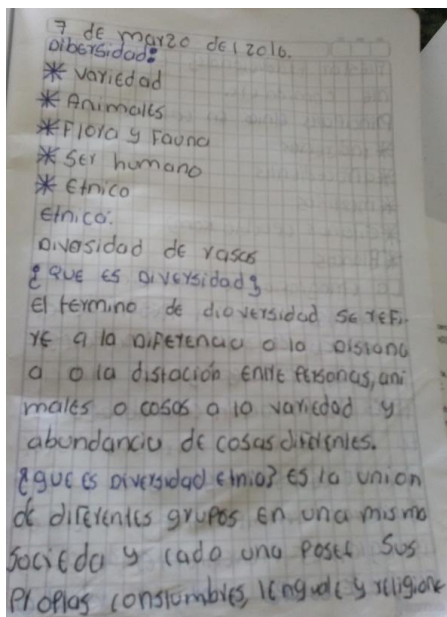 7 de marzo del 2016.
Dibersidad:
* variedad
* Animales
* Flora y Fauna
* Ser humano
* Etnico
Etnico:
Diversidad de rasas
¿Que es Diversidad?
El termino de dioversidad se refi-
re a la Diferencia o la Distanci
a o la distación entre Personas, ani
males o cosas a la variedad y
abundancia de cosas diferentes.
¿que es Diversidad etnia? Es la union
de diferentes grupos en una misma
Socieda y cada una Posee Sus
Propias constumbres, lenguaje y religione